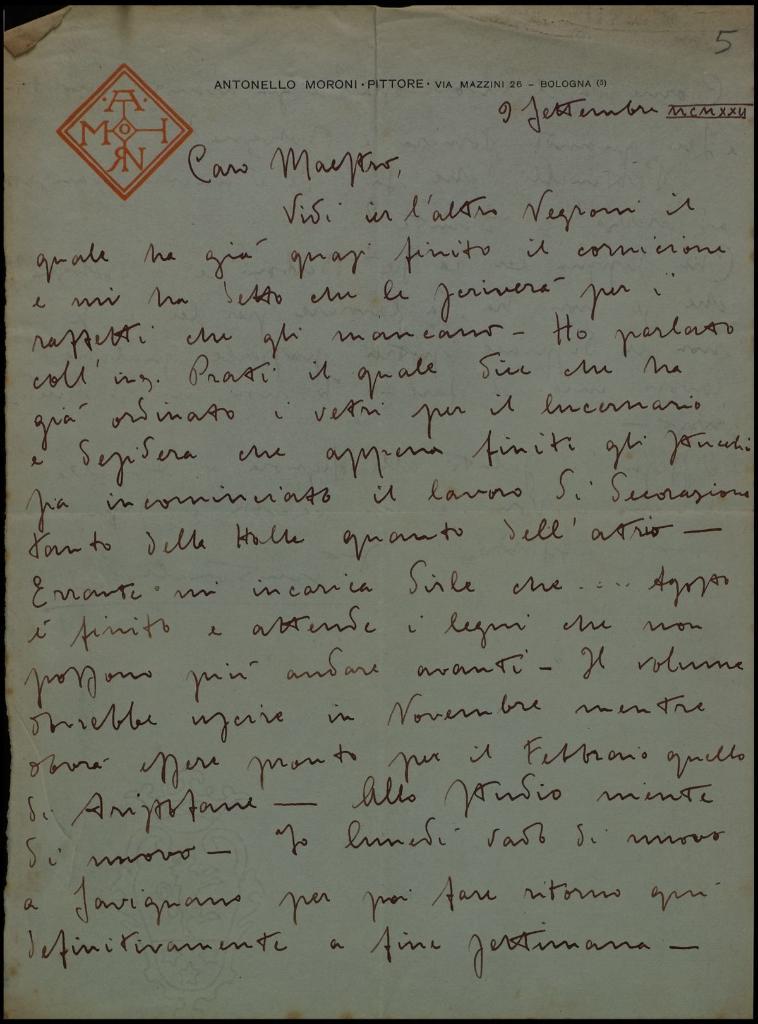 5
ANTONELLO MORONI · PITTORE · VIA MAZZINI 26 – BOLOGNA (5)
9 Settembre MCMXXII
Caro Maestro,
Vidi ier l'altro Negroni il
quale ha già quasi finito il cornicione
e mi ha detto che le scriverà per i
rassetti che gli mancano – Ho parlato
coll' ing. Prati il quale dice che ha
già ordinato i vetri per il lucernario
e desidera che appena finiti gli stucchi
sia incominciato il lavoro di decorazione
tanto della Halle quanto dell' atrio —
Errante mi incarica dirle che .... Agosto
è finito e attende i legni che non
possono più andare avanti – Il volume
dovrebbe uscire in Novembre mentre
dovrà essere pronto per il Febbraio quello
di Aristofane — Allo studio niente
di nuovo – Io lunedì vado di nuovo
a Savignano per poi fare ritorno qui
definitivamente a fine settimana —